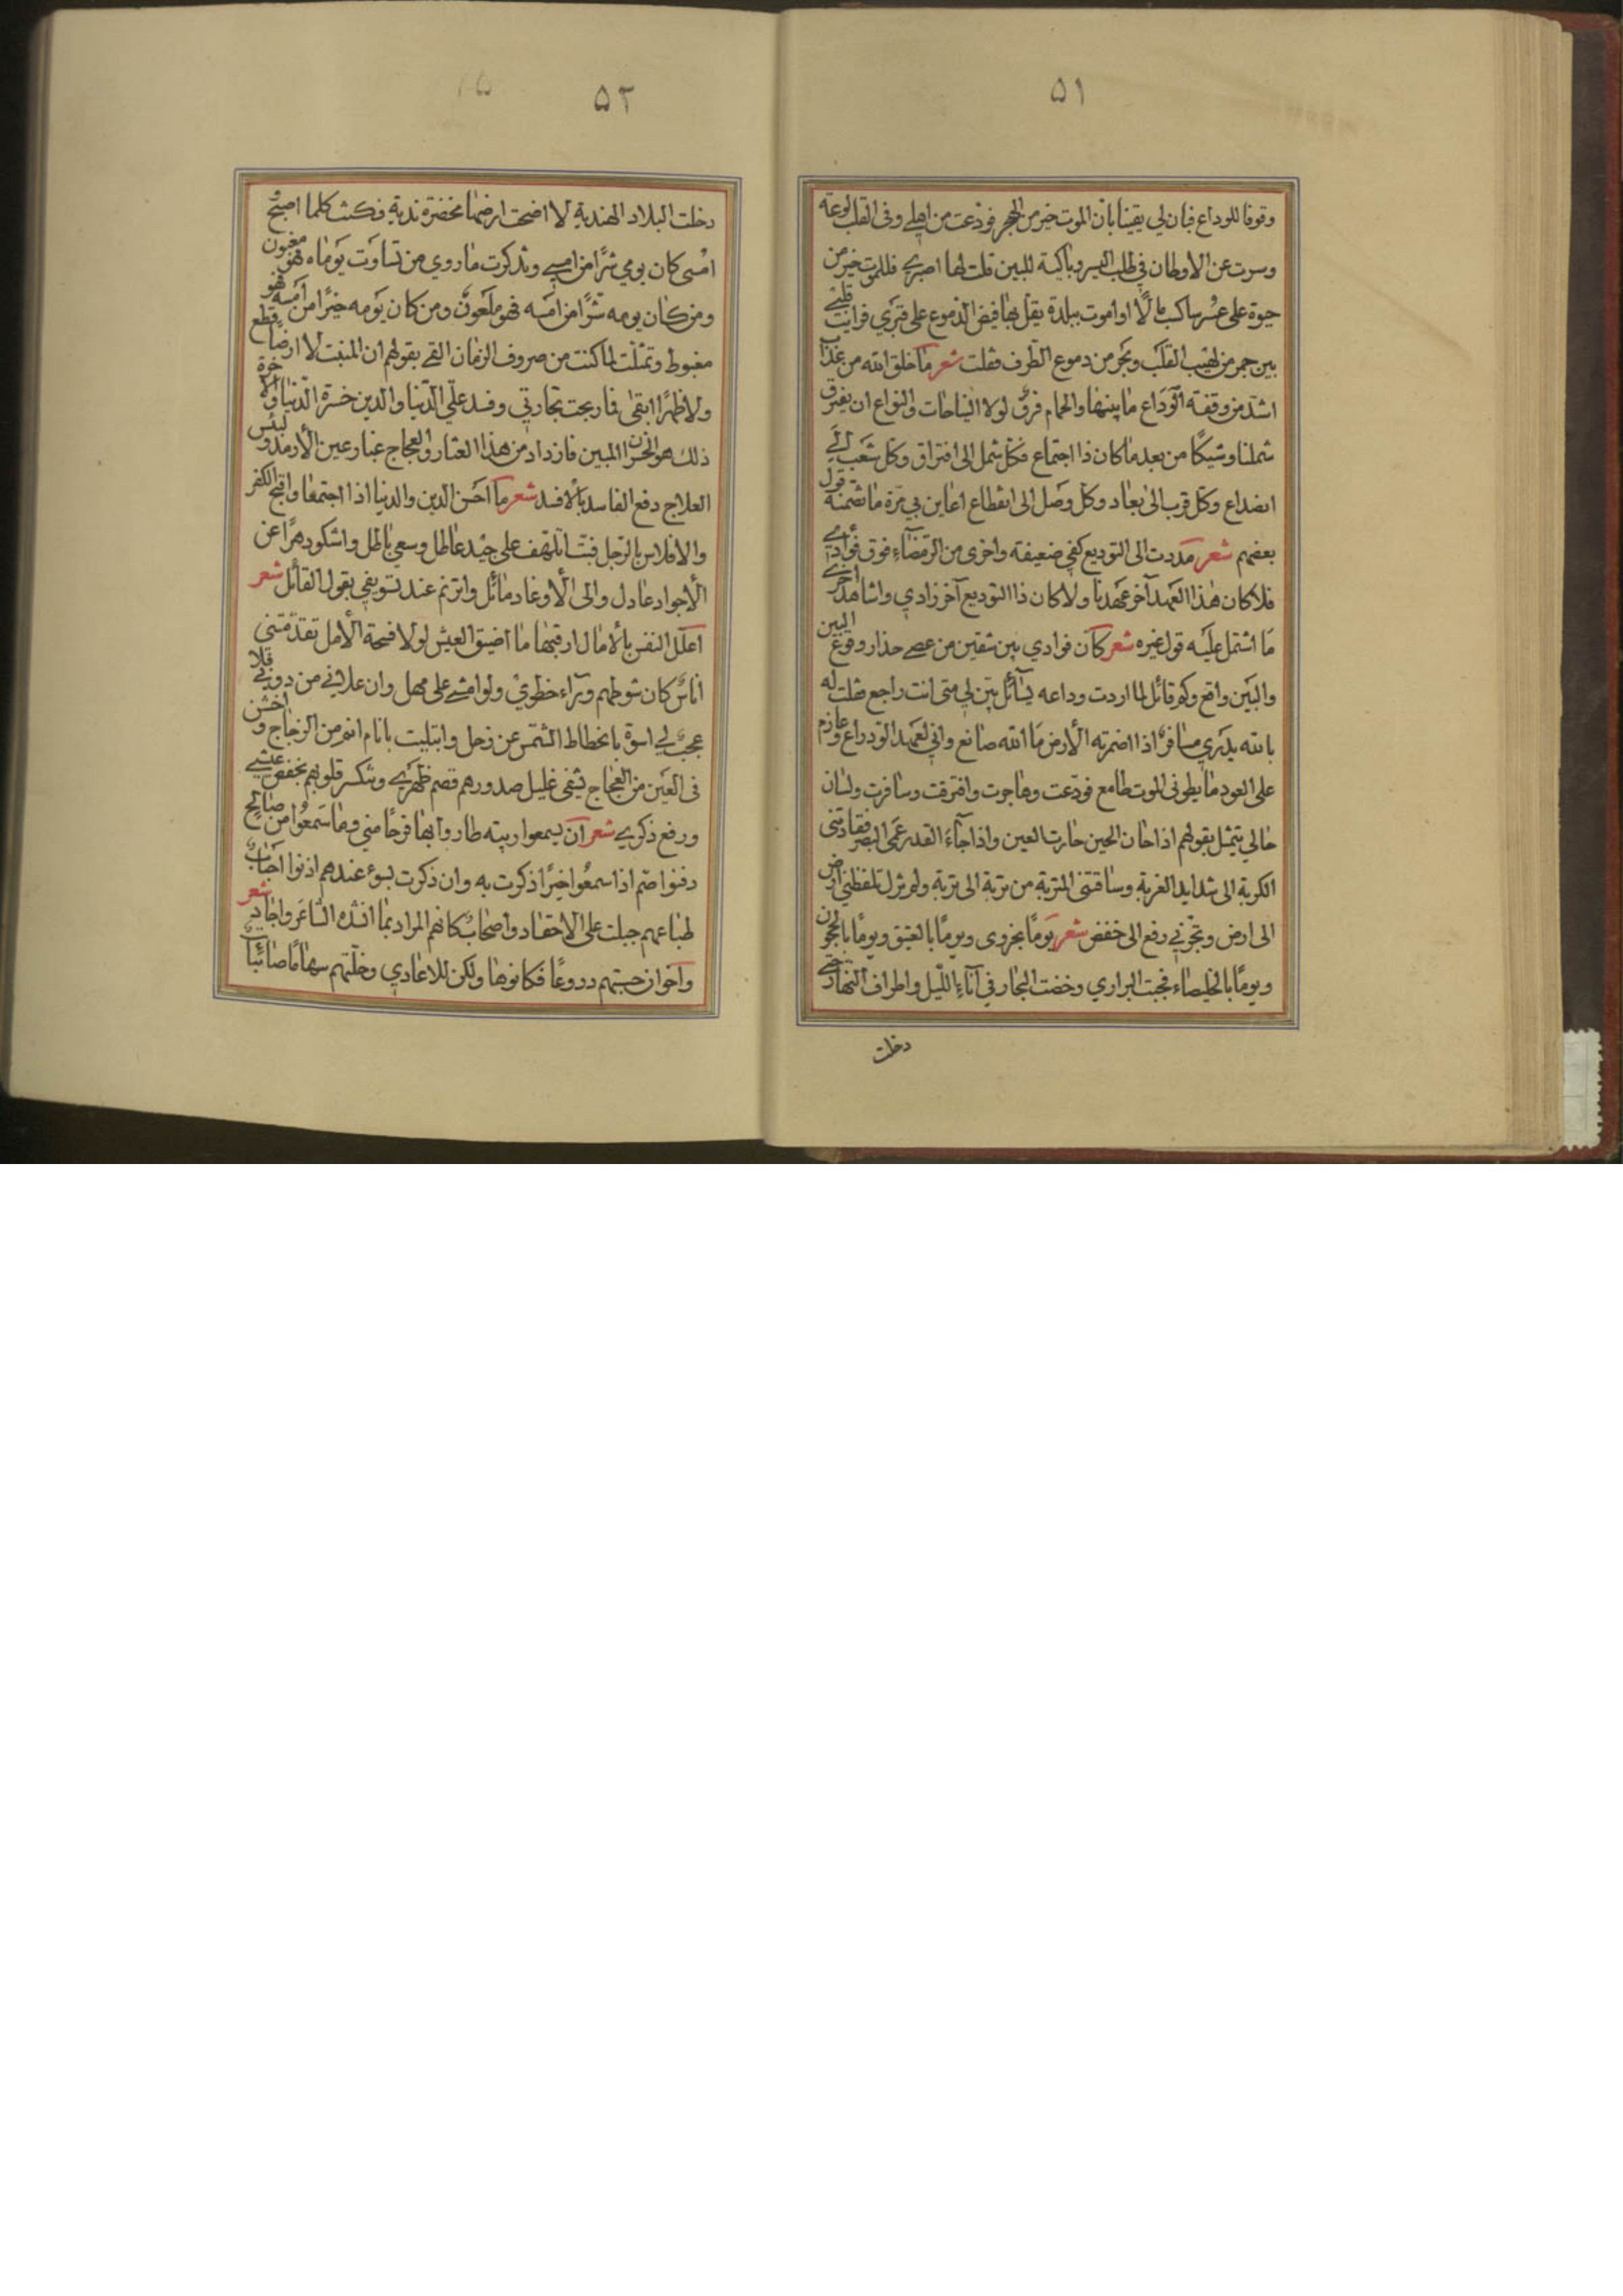 ٥١
وقوفا للوداع فبان لي يقينا بأن الموت خير من الهجر فودعت من اهلي وفى القلب لوعة
وسرت عن الاوطان في طلب اليسر وباكية للبين قلت لها اصبري فللموت خير من
حيوة على عسر ساكسب مالًا او اموت ببلدة يقل بها فيض الدموع على قبري فرايت قلبي
بين جمر من لهيب القلب وبحر من دموع الطرف فقلت شعر ما خلق الله من عذاب
اشد من وقفة الوداع ما بينها والحمام فرق لولا النياحات والنواع ان يفترق
شملنا وشيكًا من بعد ما كان ذا اجتماع فكل شمل الى افتراق وكل شعب الى
انصداع وكل قرب الى بعاد وكل وصل الى انقطاع اعاين بي مرة ما تضمنه قول
بعضهم شعر مددت الى التوديع كفي ضعيفة واخرى من الرمضاء فوق فوادي
فلا كان هذا العهد آخر عهدنا ولا كان ذا التوديع آخر زادي واشاهد اخرى
ما اشتمل عليه قول غيره شعر كأن فوادي بين شقين من عصى حذار وقوع البين
والبين واقع وكم قائل لما اردت وداعه يسائل بين لي متى انت راجع فقلت له
بالله يدري مسافر اذا اضمرته الأرض ما الله صانع واني لعهد الوداع وعازم
على العود ما يطوني الموت طامع فودعت وهاجرت وافترقت وسافرت ولسان
حالي يتمثل بقولهم اذا حان الحين حارت العين واذا جاء القدر عمى البصر فقادتنى
الكربة الى شدايد الغربة وساقتنى المتربة من تربة الى تربة ولم تزل تلفظني ارض
الى ارض وتجرني رفع الى خفض شعر يومًا بحزوى ويومًا بالعقيق ويومًا بالحجون
ويومًا بالخليصاء فجبت البراري وخضت البحار في آناء الليل واطراف النهار حتى
دخلت
٥٢
دخلت البلاد الهندية لا اضحت ارضها مخضرة ندية فكنت كلما اصبح
امسى كان يومي شرًا من امسي وتذكرت ما روي من تساوت يوماه فهو مغبون
ومن كان يومه شرًا من امسه فهو ملعون ومن كان يومه خيرًا من امسه فهو
مغبوط وتمثلت لما كنت من صروف الزمان القى بقولهم ان المنبت لا ارضا قطع
ولا ظهرًا ابقى فما ربحت تجارتي وفسد على الدنيا والدين خسرة الدنيا والاخرة
ذلك هو الخسران المبين فازداد من هذا العثار والعجاج غبار عين الأرمد وليس
العلاج دفع الفاسد بالأفسد شعر ما احسن الدين والدنيا اذا اجتمعا واقبح الكفر
والافلاس بالرجل فبت اتلهف على جيد عاطل وسعي باطل واشكو دهرًا عن
الأجواد عادل والى الأوغاد مائل واترنم عند تسويفي بقول القائل شعر
اعلل النفس بالأمال ارقبها ما اضيق العيش لولا فسحة الأمل تقدمتني
اناس كان شوطهم وراء خطوي ولو امشي على مهل وان علاني من دوني فلا
عجب لي اسوة بانحطاط الشمس عن زحل وابتليت باناس انم من الزجاج واخشن
فى العين من العجاج يشفى غليل صدورهم قصم ظهري وتنكسر قلوبهم بخفض عيشي
ورفع ذكري شعر ان يسمعوا ريبة طاروا بها فرحًا مني وما سمعوا من صالح
دفنوا صم اذا سمعوا خيرًا ذكرت به وان ذكرت بسوء عندهم اذنوا احباب
طباعهم جبلت على الاحقاد واصحاب كانهم المراد بما انشده الشاعر واجاد شعر
واخوان حسبتهم دروعًا فكانوها ولكن للاعادي وخلتهم سهامًا صائبات